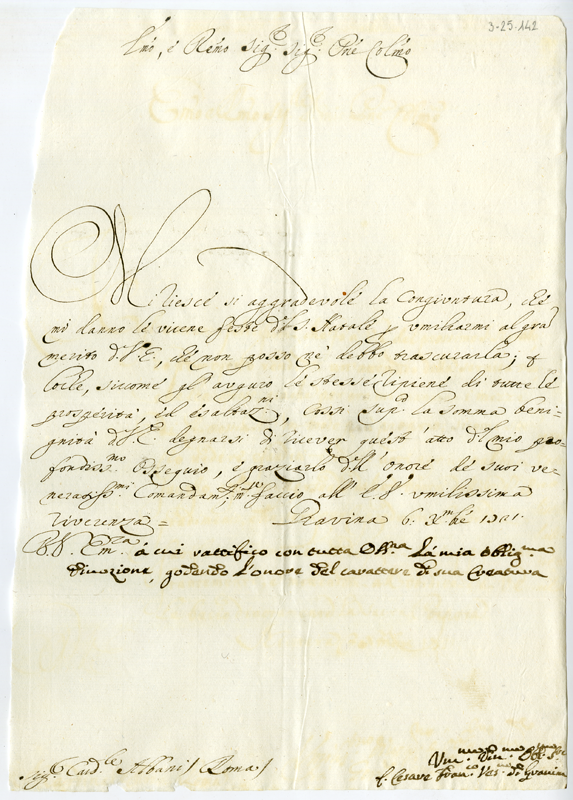 3-25-142
Emo, e Reno Sig.r Sig.r Pne Colmo
Mi riesce si aggradevole la congiuntura, che
mi danno le vicine feste del S. Natale p umiliarmi al gra
merito d V. E., che non posso ne debbo trascurarla; e
siccome gli auguro le stesse ripiene di tutte le
prosperità, ed esaltaz.ni, cossi sup.co la somma beni-
gnità d V. E. degnarsi di ricever quest' atto del mio pro-
fondiss.mo ossequio, e graziarlo dell' onore de suoi ve-
neratiss.mi Comandam.ti, m.e faccio all' E. V. umilissima
riverenza = Gravina 6. Xmbre
D. V. Em.za à cui rattifico con tutta la mia oblig.ma
divozione, godendo l'onore del carattere di sua Creatura
Sig.r Card.le Albani / Roma /
Um.mo Div.mo Obb.mo
f. Cesare Fran.co Ves.vo di Gravina